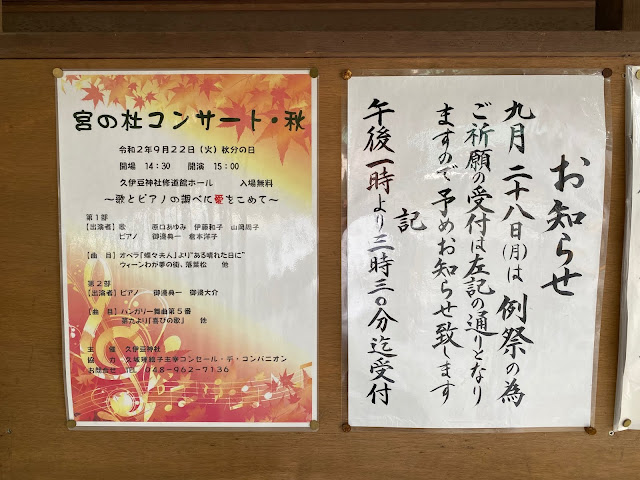 宮の杜コンサート・秋
令和2年9月22日（火）秋分の日
開場 14:30 開演 15:00
久伊豆神社修道館ホール 入場無料
～歌とピアノの調べに愛をこめて～
第1部
【出演者】歌 原口あゆみ 伊藤和子 山岡周子
ピアノ 御邊典一 倉本洋子
【曲 目】オペラ“蝶々夫人”より“ある晴れた日に”
ウィーンわが夢の街、落葉松 他
第2部
【出演者】ピアノ 御邊典一 御邊大介
【曲 目】ハンガリー舞曲第5番
第九より『喜びの歌』 他
主 催 久伊豆神社
協 力 久城理絵子主宰コンセール・デ・コンパニオン
お問合せ 048-962-7136
お知らせ
九月二十八日(月)は例祭の為
ご祈願の受付は左記の通りとなり
ますので予めお知らせ致します
記
午後一時より三時三〇分迄受付